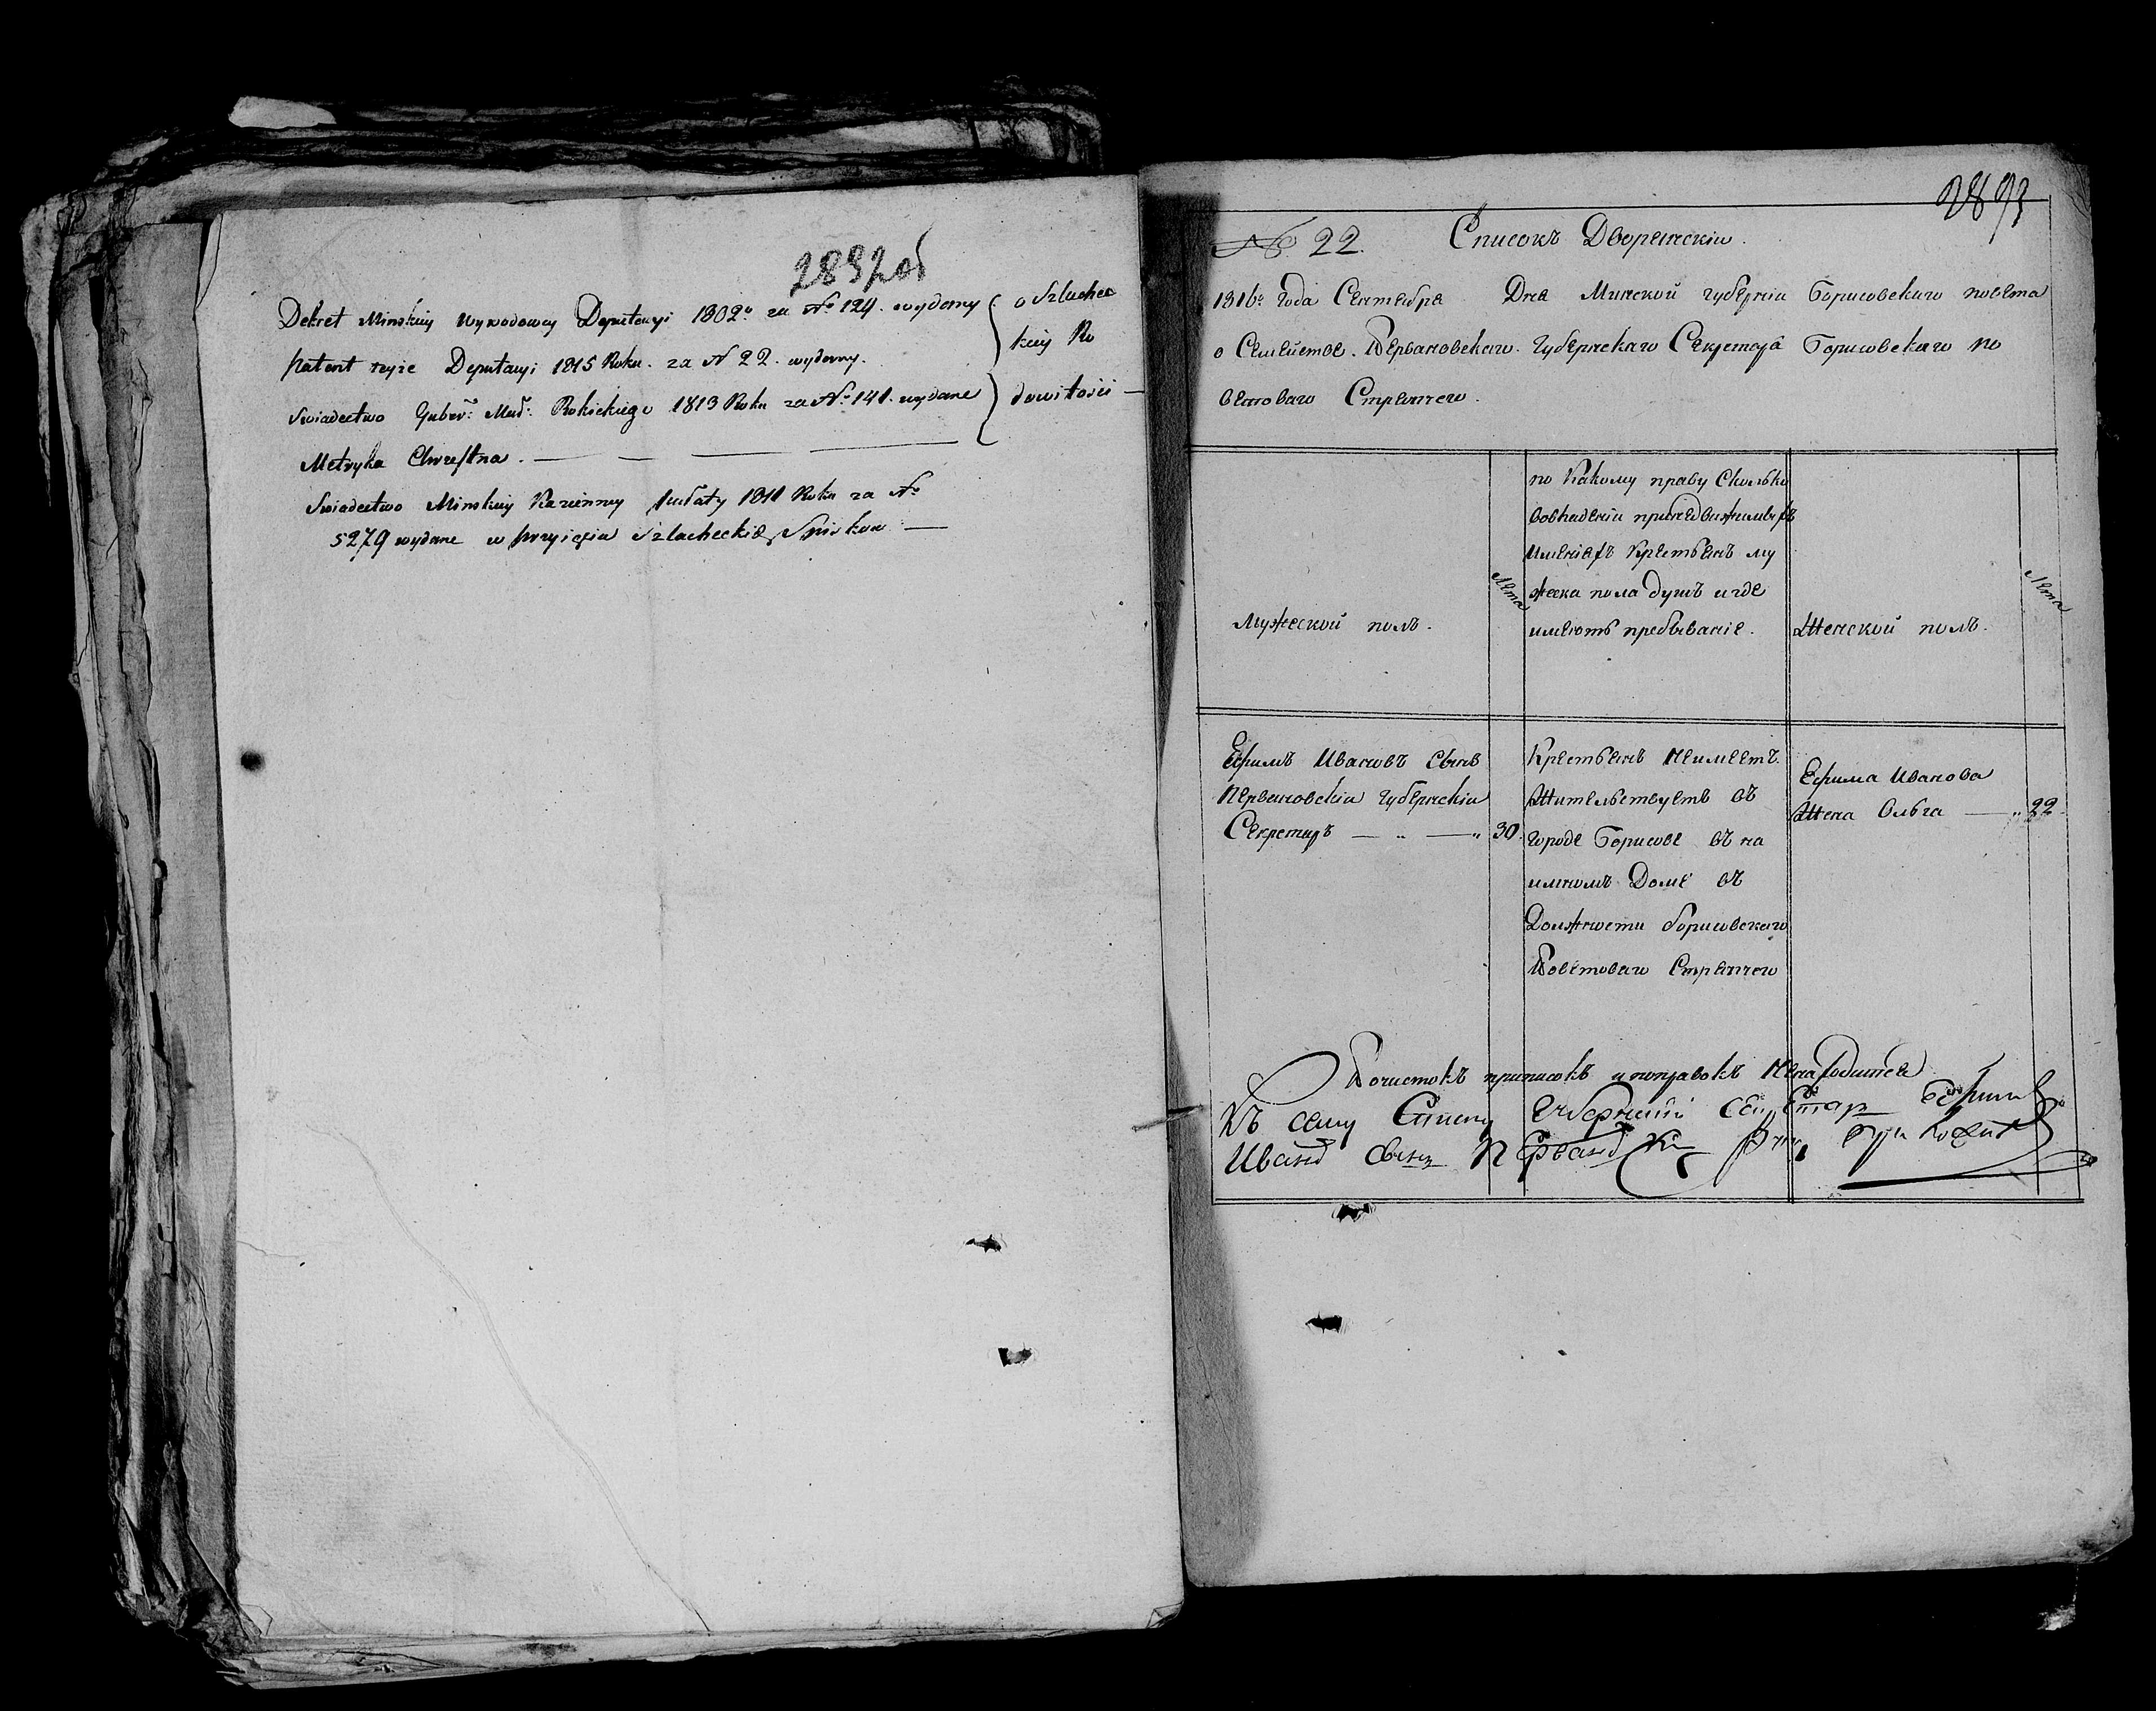 2892 об
Dekret Minskiey Wywodowey Deputacyi 1802º za Nº 124. wydany
Patent teyże Deputacyi 1815 Roku. za N 22. wydany.
Swiadectwo Guber: Mar: Rokickiego 1813 Roku za Nº 141. wydane
o Szlachec
kiey Ro
dowitości —
Metryka Chrestna. — — — —
Swiadectwo Minskiey Kazienney Pałaty 1811 Roku za Nº
5279 wydane w przyięciu Szlacheckich Spiskow —
2893
№ 22. Списокъ Дворянскій.
1816го Года Сентября Дня Минской губерніи Борисовскаго повета
о Семействе. Первановскаго. Губернскаго Секретаря Борисовскаго по
ветоваго Стряпчего.
Мужеской полъ.
Лета
по Какому праву Сколько
во владеніи
именіяхъ Крестьянъ му
жеска пола душъ и где
имеютъ пребываніе.
Женской полъ.
Лета
Ефимъ Ивановъ Сынъ
Первановскій Губернскій
Секретарь — „ — „ 30.
Крестьянъ Неимеетъ.
Жительствуетъ въ
городе Борисове въ на
имномъ Доме въ
Должности Борисовскаго
Поветоваго Стряпчего
Ефима Иванова
Жена Ольга — „ 22.
Почистокъ приписокъ и поправокъ Ненаходится
Къ сему Списку Губернский Секретар Ефим
Иванов Сынъ Перванов ский руку